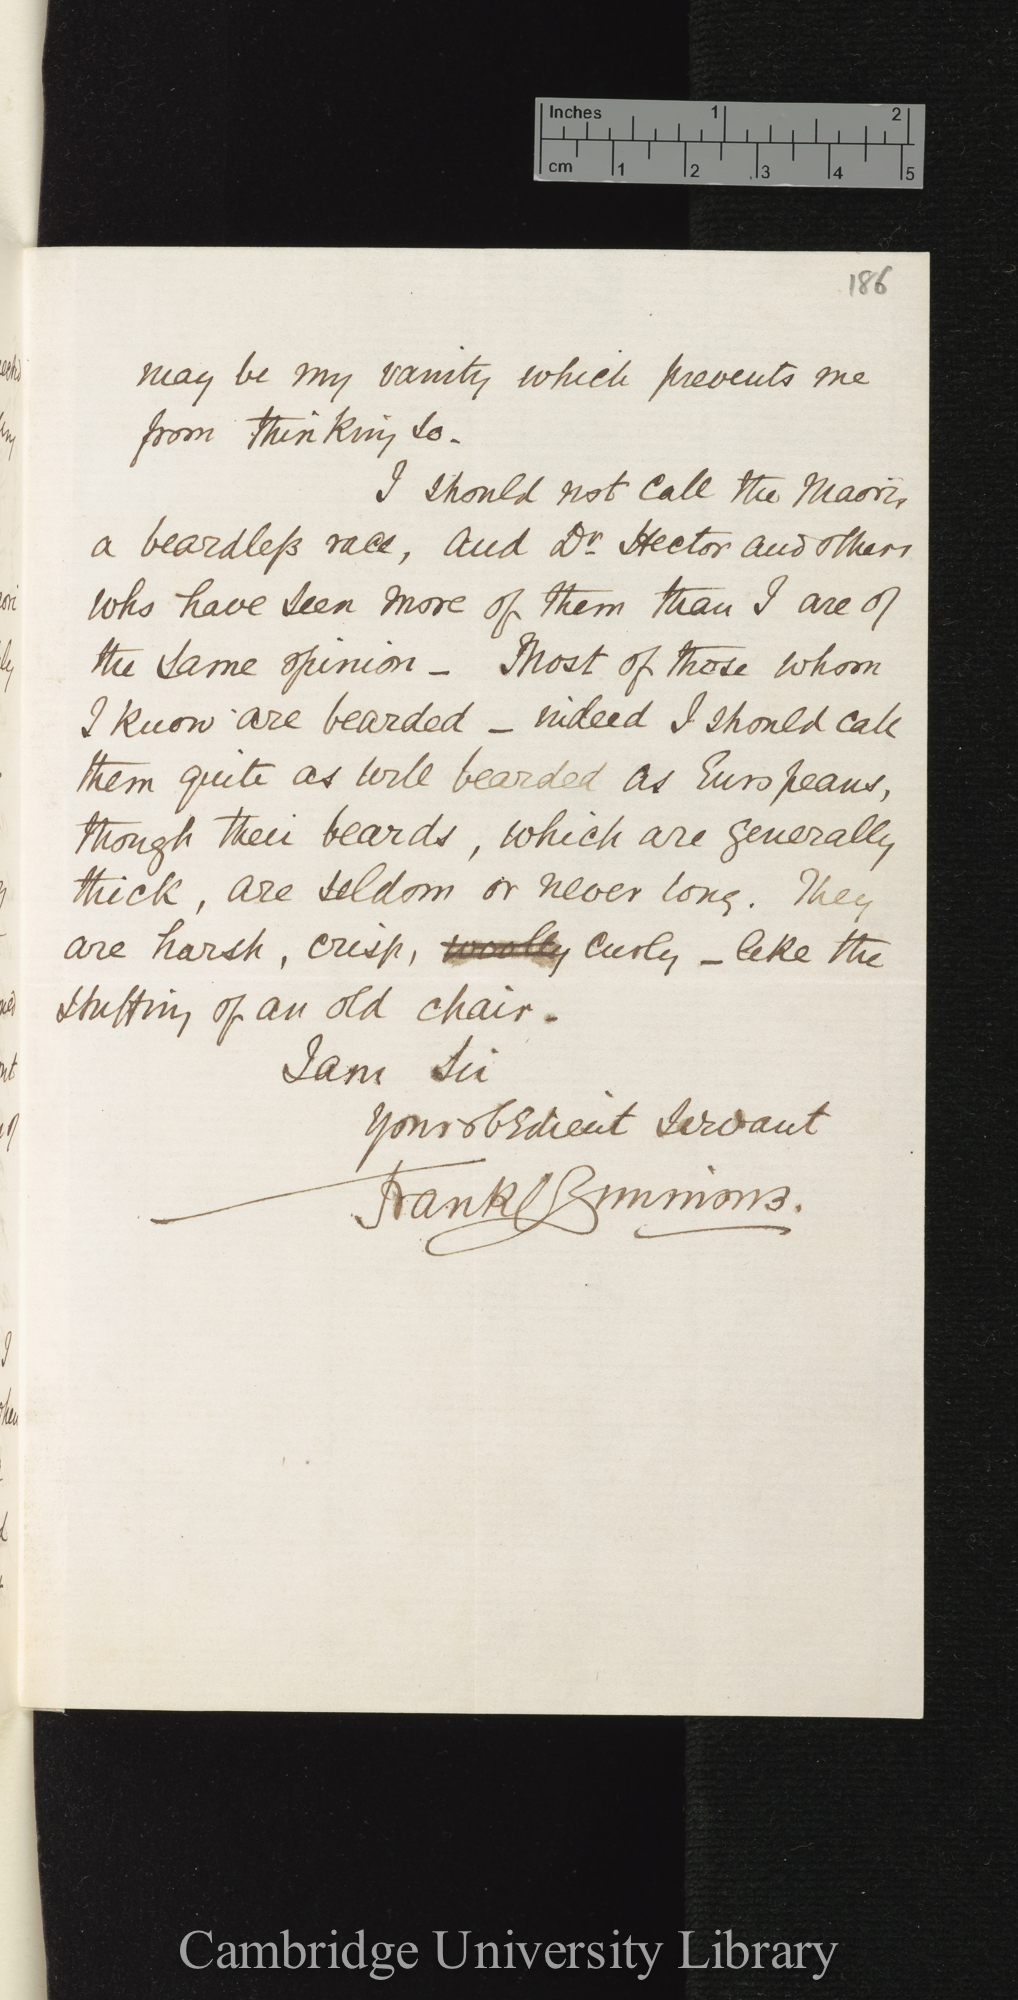 Inches 1 2
cm 1 2 3 4 5
186
may be my vanity which prevents me
from thinking so.
I should not call the Maoris
a beardleſs race, and Dr Hector and others
who have seen more of them than I are of
the same opinion – Most of those whom
I know are bearded – indeed I should call
them quite as well bearded as Europeans,
though their beards, which are generally
thick, are seldom or never long. They
are harsh, crisp, woolly curly – like the
stuffing of an old chair.
I am Sir
Your obedient Servant
Frank Simmons.
Cambridge University Library